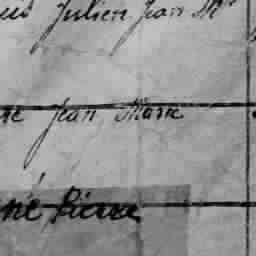 Julien Jean M
Jean Marie
né Pierre